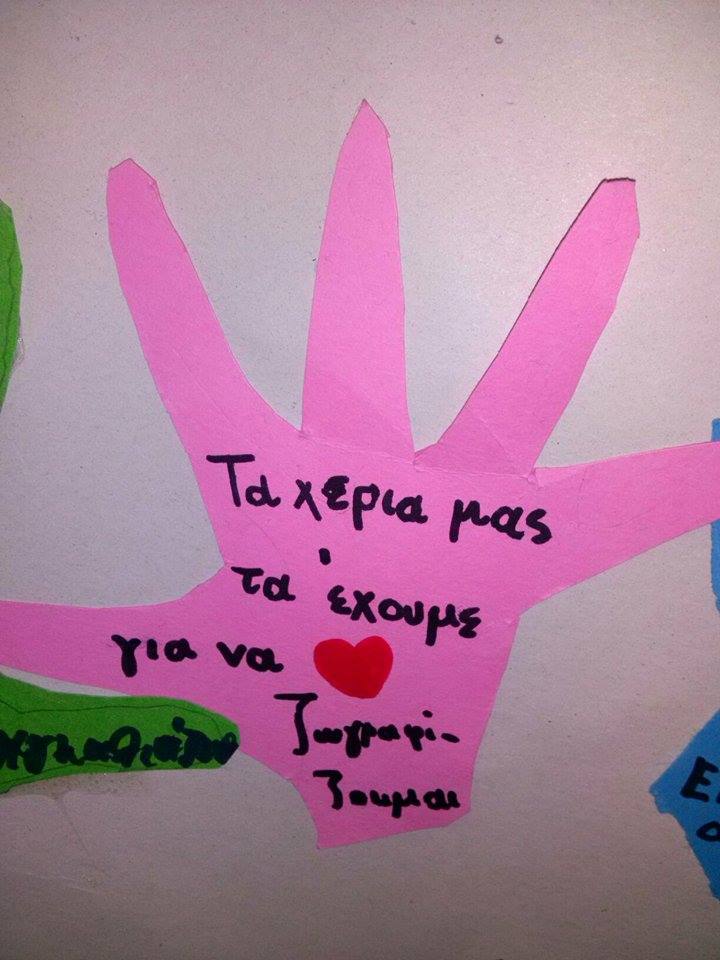 Τα χερια μας
τα έχουμε
για να
ζωγραφί-
ζουμε
Ε